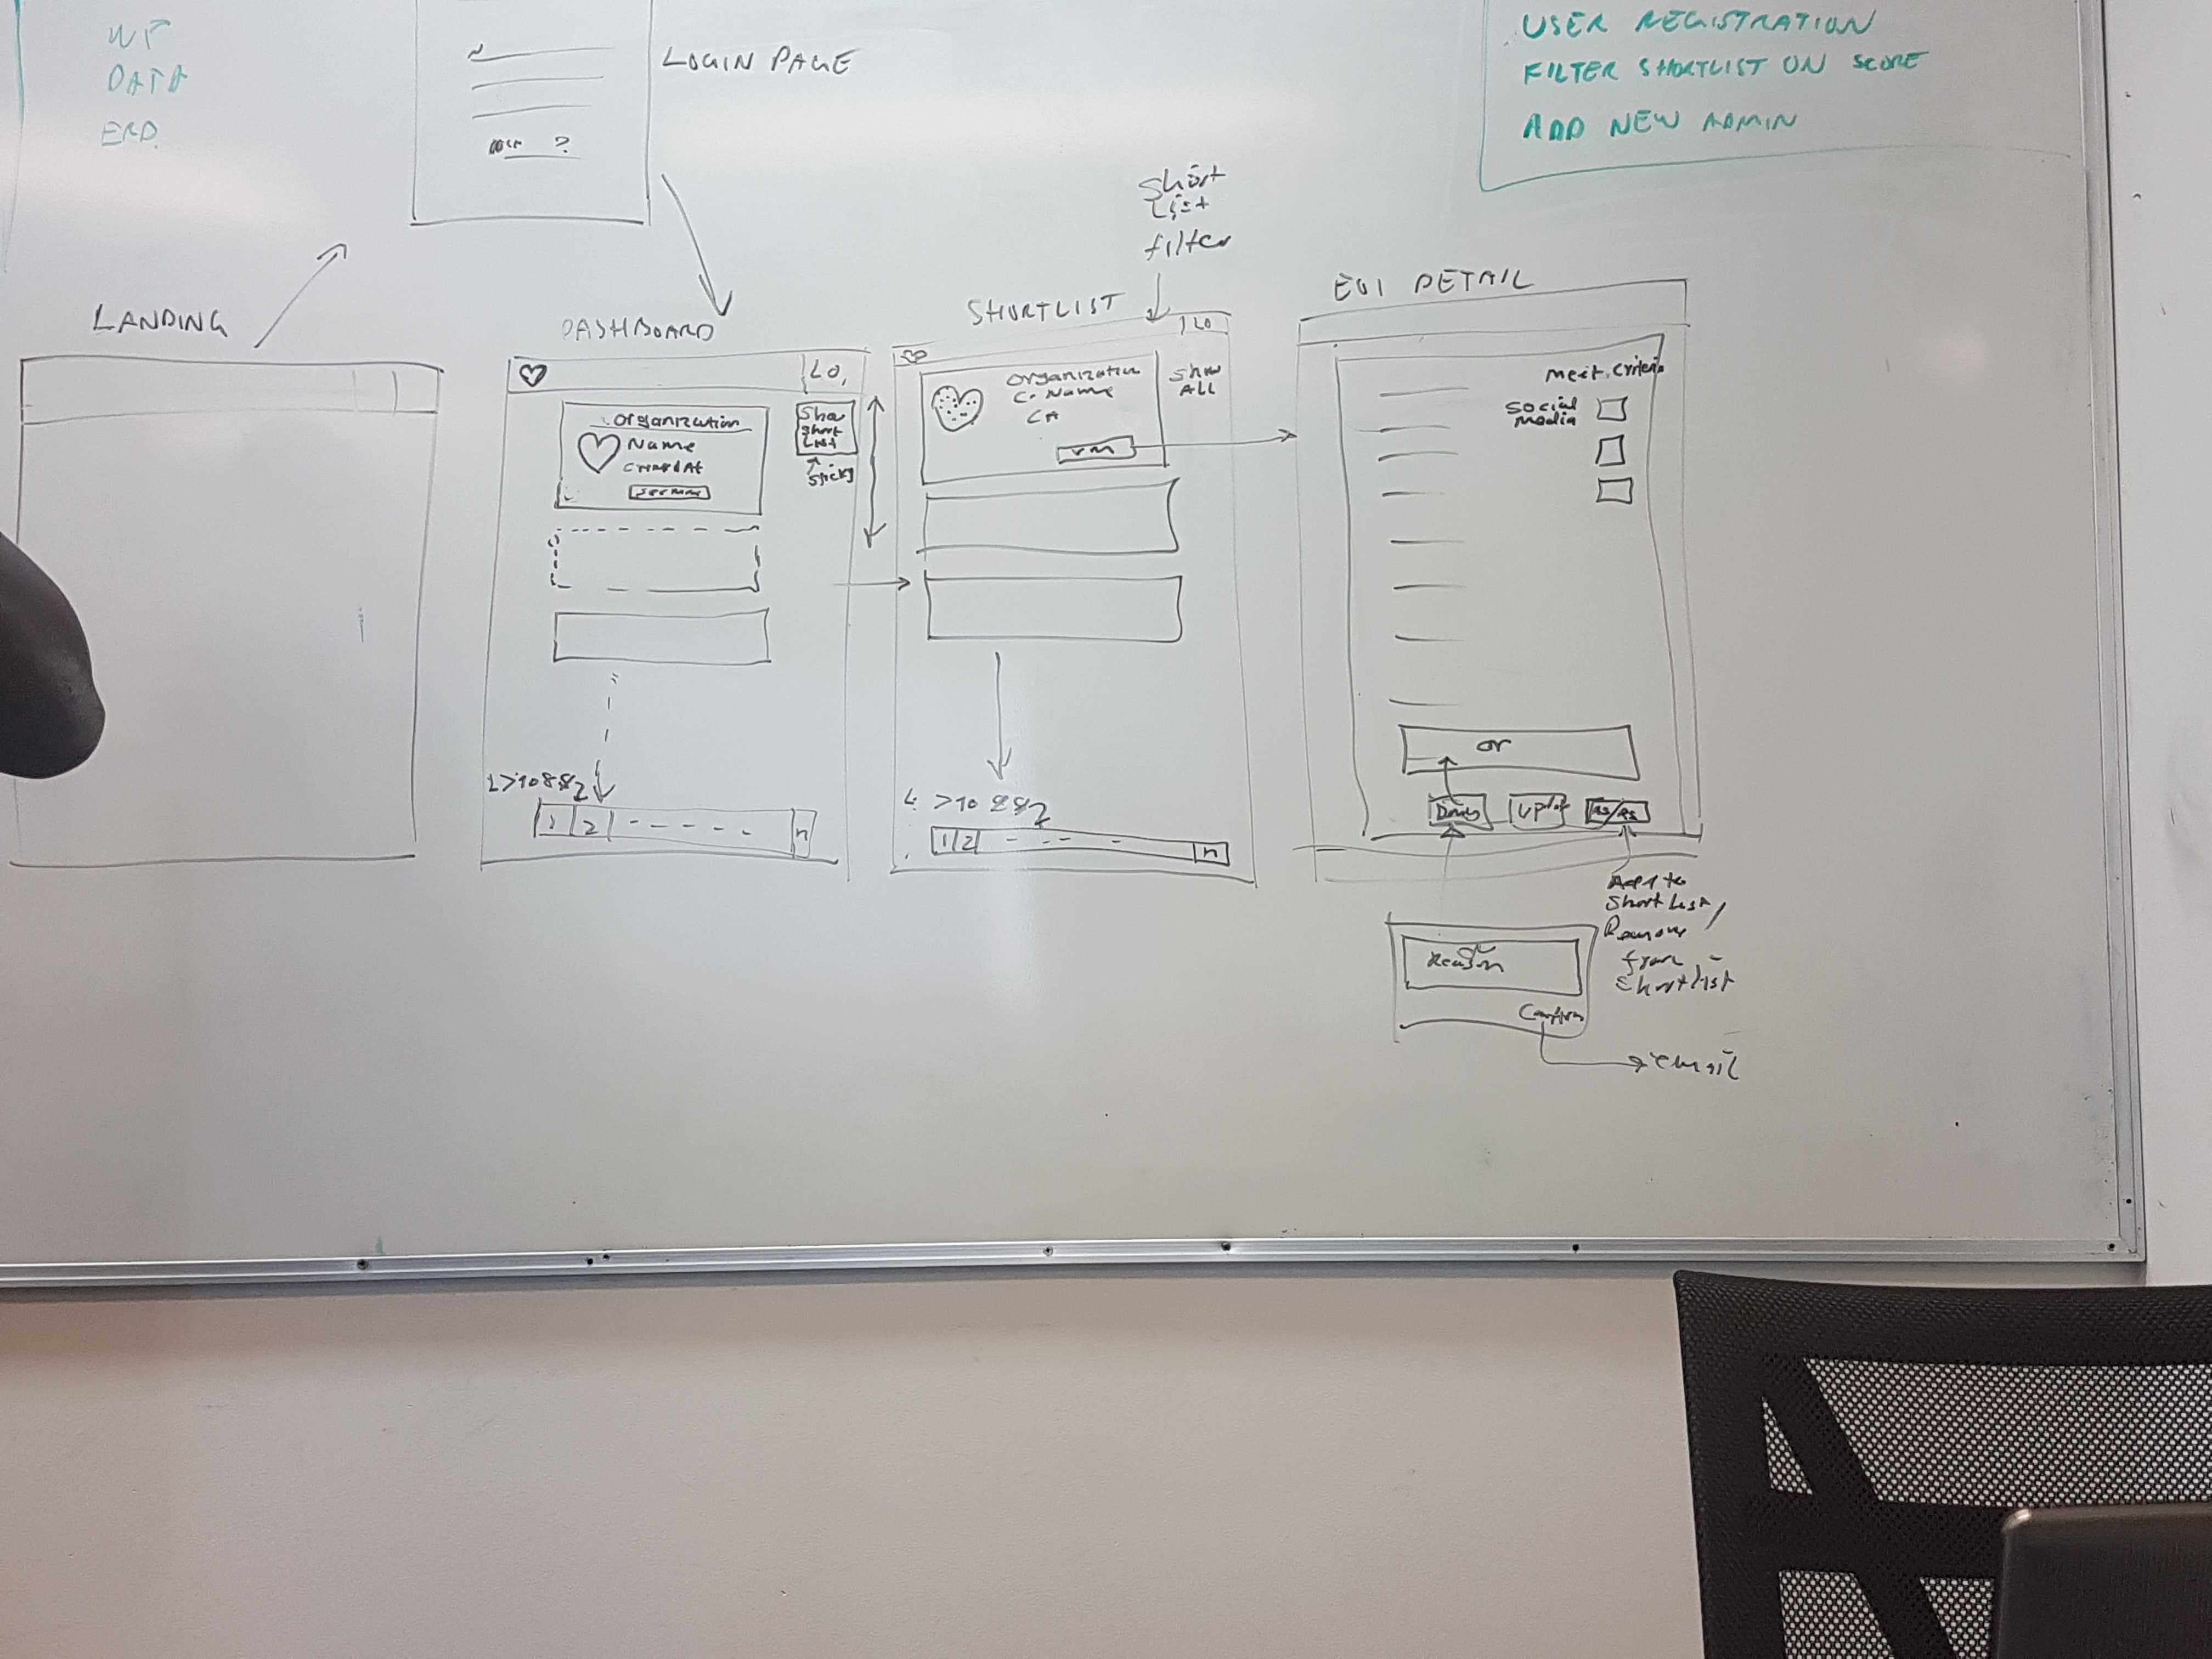 WF
DATA
ERD
LOGIN PAGE
?
USER REGISTRATION
FILTER SHORTLIST ON SCORE
ADD NEW ADMIN
Short
List
filter
LANDING
DASHBOARD
LO
Organization
Name
Created At
See more
Show
Short
List
Sticky
L>10
1 2 - - - - - n
SHORTLIST
LO
Organization
C. Name
CA
VM
Show
ALL
L >10
1 2 - - - - n
EOI DETAIL
Meet. Criteria
Social
Media
or
Update
AS/RS
Add to
Short List /
Remove
from
Shortlist
Reason
Confirm
email